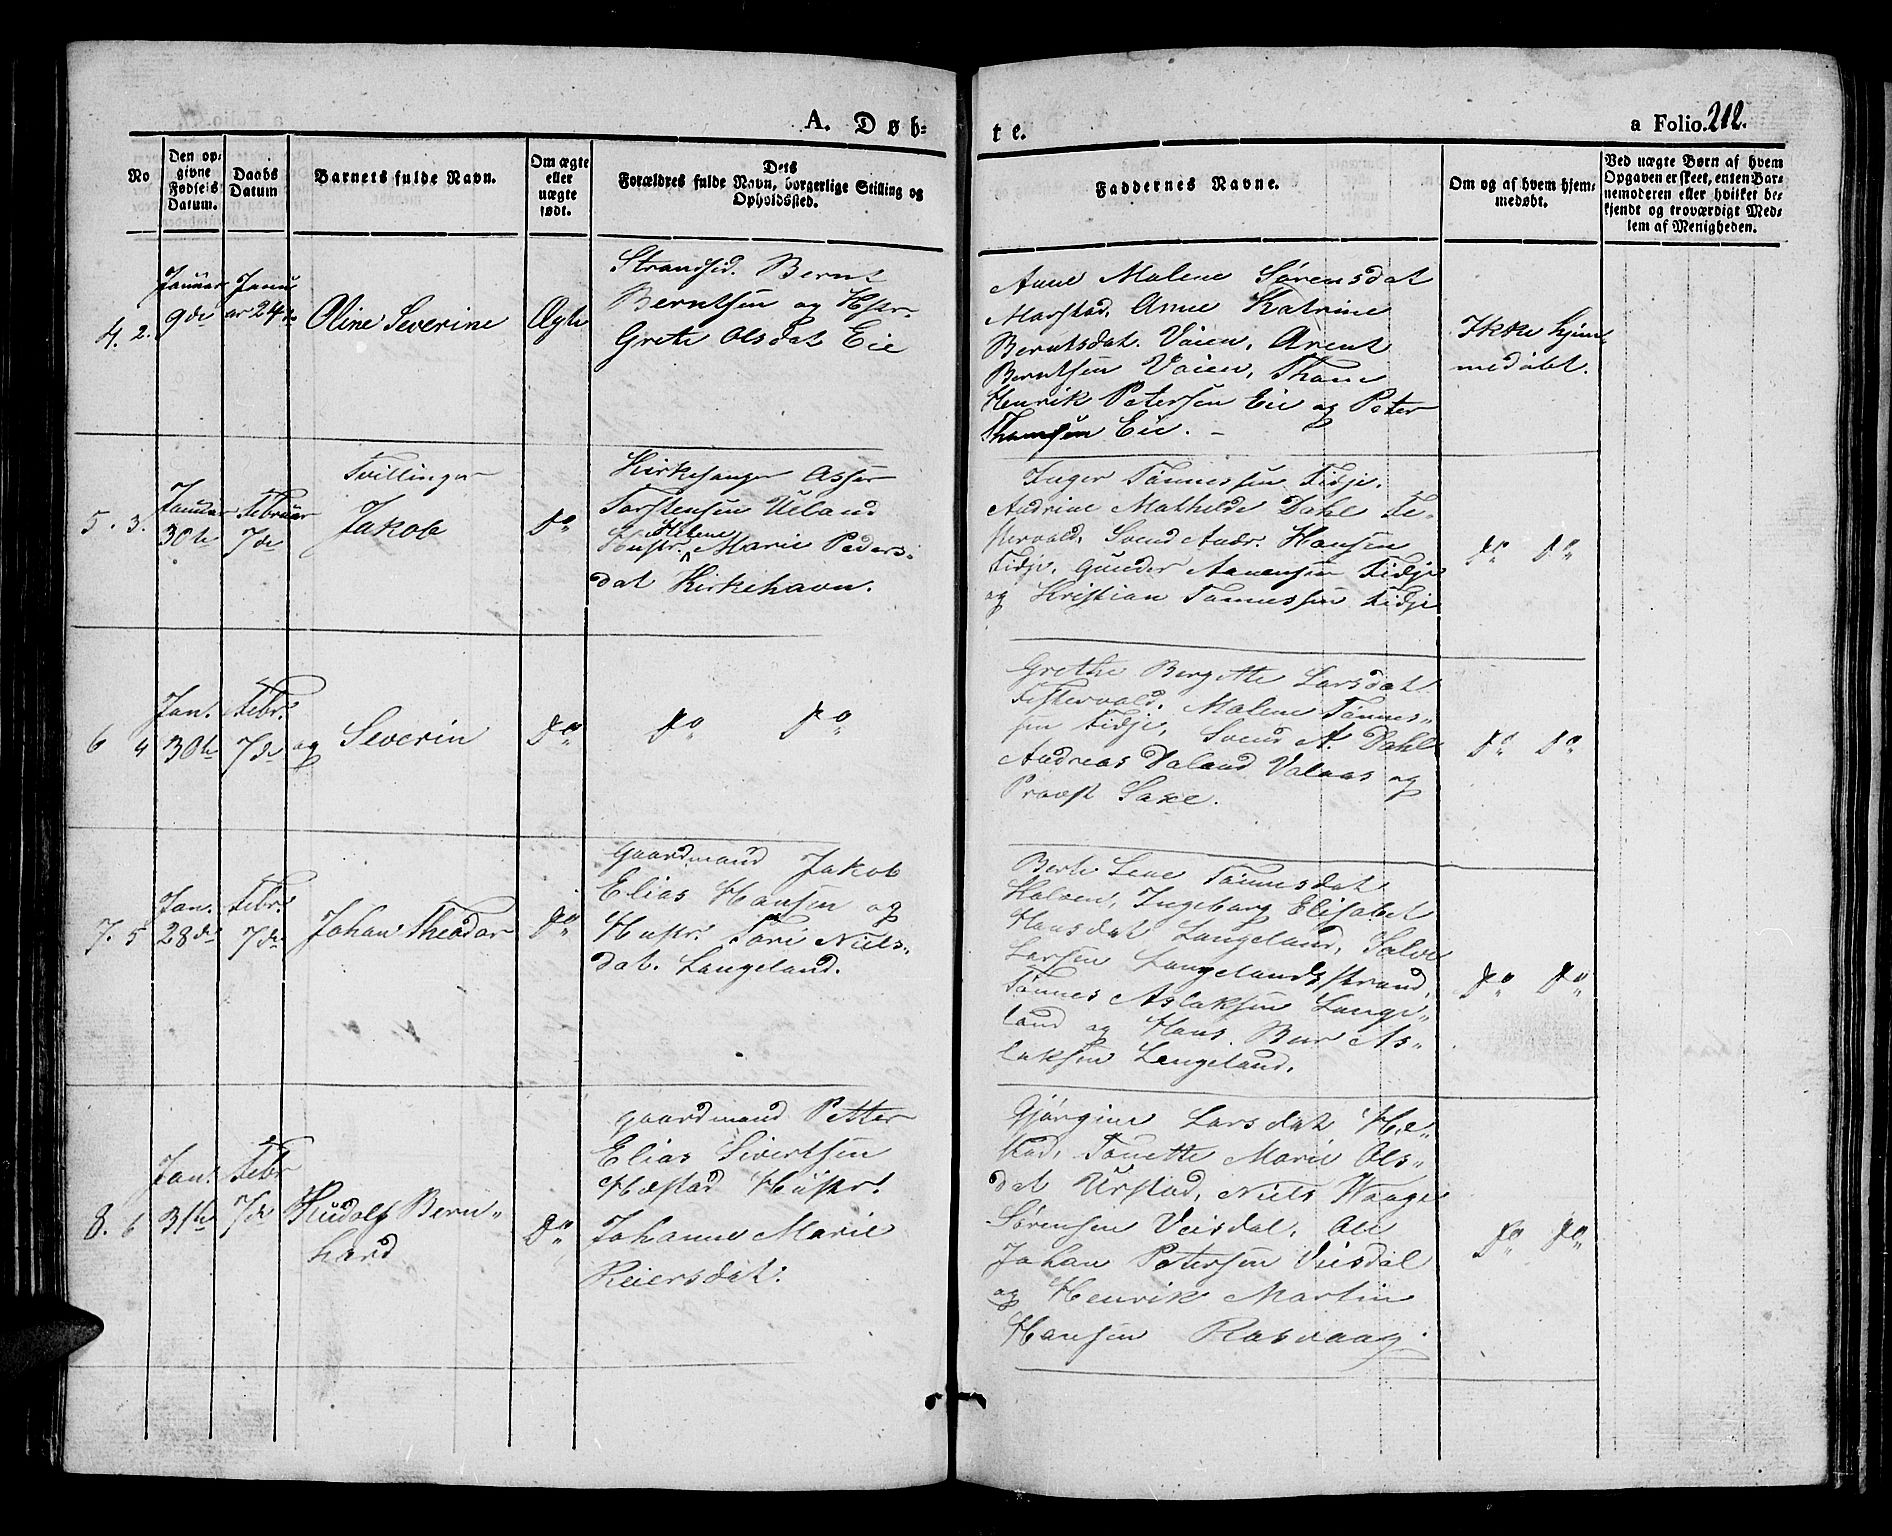 A. Døb-
te.
a Folio. 212.
No
Den op-
givne
Fødsels
Datum.
Daabs
Datum
Barnets fulde Navn.
Om ægte
eller
uægte
født.
Dets
Forældres fulde Navn, borgerlige Stilling og
Opholdssted.
Faddernes Navne.
Om og af hvem hjem-
medøbt.
Ved uægte Børn af hvem
Opgaven er skeet, enten Bar-
nemoderen eller hvilket be-
kjendt og troværdigt Med-
lem af Menigheden.
4. 2.
Januar
9de
Janu
ar 24de
Oline Severine
Ægte
Strandsid. Bernt
Berntsen og Hstr.
Grete Olsdat Eie
Anne Malene Sørensdat
Marstad, Anne Katrine
Berntsdat. Vaien, Arent
Berntsen Vaien, Thom
Henrik Petersen Eie og Peter
Thomsen Eie. –
Ikke hjem
medøbt.
5. 3.
Januar
30te
Februar
7de
Tvillinger
Jakob
Do
Kirkesanger Asser
Torstensen Ueland
Helene
Marie Peders-
dat Kirkehavn.
Inger Tønnessen Fidje,
Andrine Mathilde Dahl Fe-
stervold, Svend Andr. Hansen
Fidje, Gunder Aanensen Fidje
og Kristian Tønnessen Fidje
Do Do
6 4
Jan.
30te
Febr.
7de
og Severin
Do
Do Do
Grethe Bergette Larsdat
Festervold, Malene Tønnes-
sen Fidje, Svend A. Dahl
Andreas Daland Valaas og
Provst Saxe.
Do Do
7. 5
Jan.
28de
Febr.
7de
Johan Theodor
Do
Gaardmand Jakob
Elias Hansen og
Hustr. Tori Niels-
dat. Langeland.
Berte Lene Tønnesdat
Halven, Ingeborg Elisabet
Hansdat Langeland, Salve
Larsen Langelandsstrand,
Tønnes Aslaksen Lange-
land og Hans Ber As-
laksen Langeland.
Do Do
8. 6
Jan.
31te
Febr
7de
Rudolf Bern-
hard
Do
gaardmand Petter
Elias Sivertsen
Hæstad Hustr.
Johanne Marie
Reiersdat.
Gjørgine Larsdat Hæ-
stad, Tonette Marie Ols-
dat Urstad, Niels Waage
Sørensen Veisdal, Ole
Johan Petersen Veisdal
og Henrik Martin
Hansen Rasvaag.
Do Do